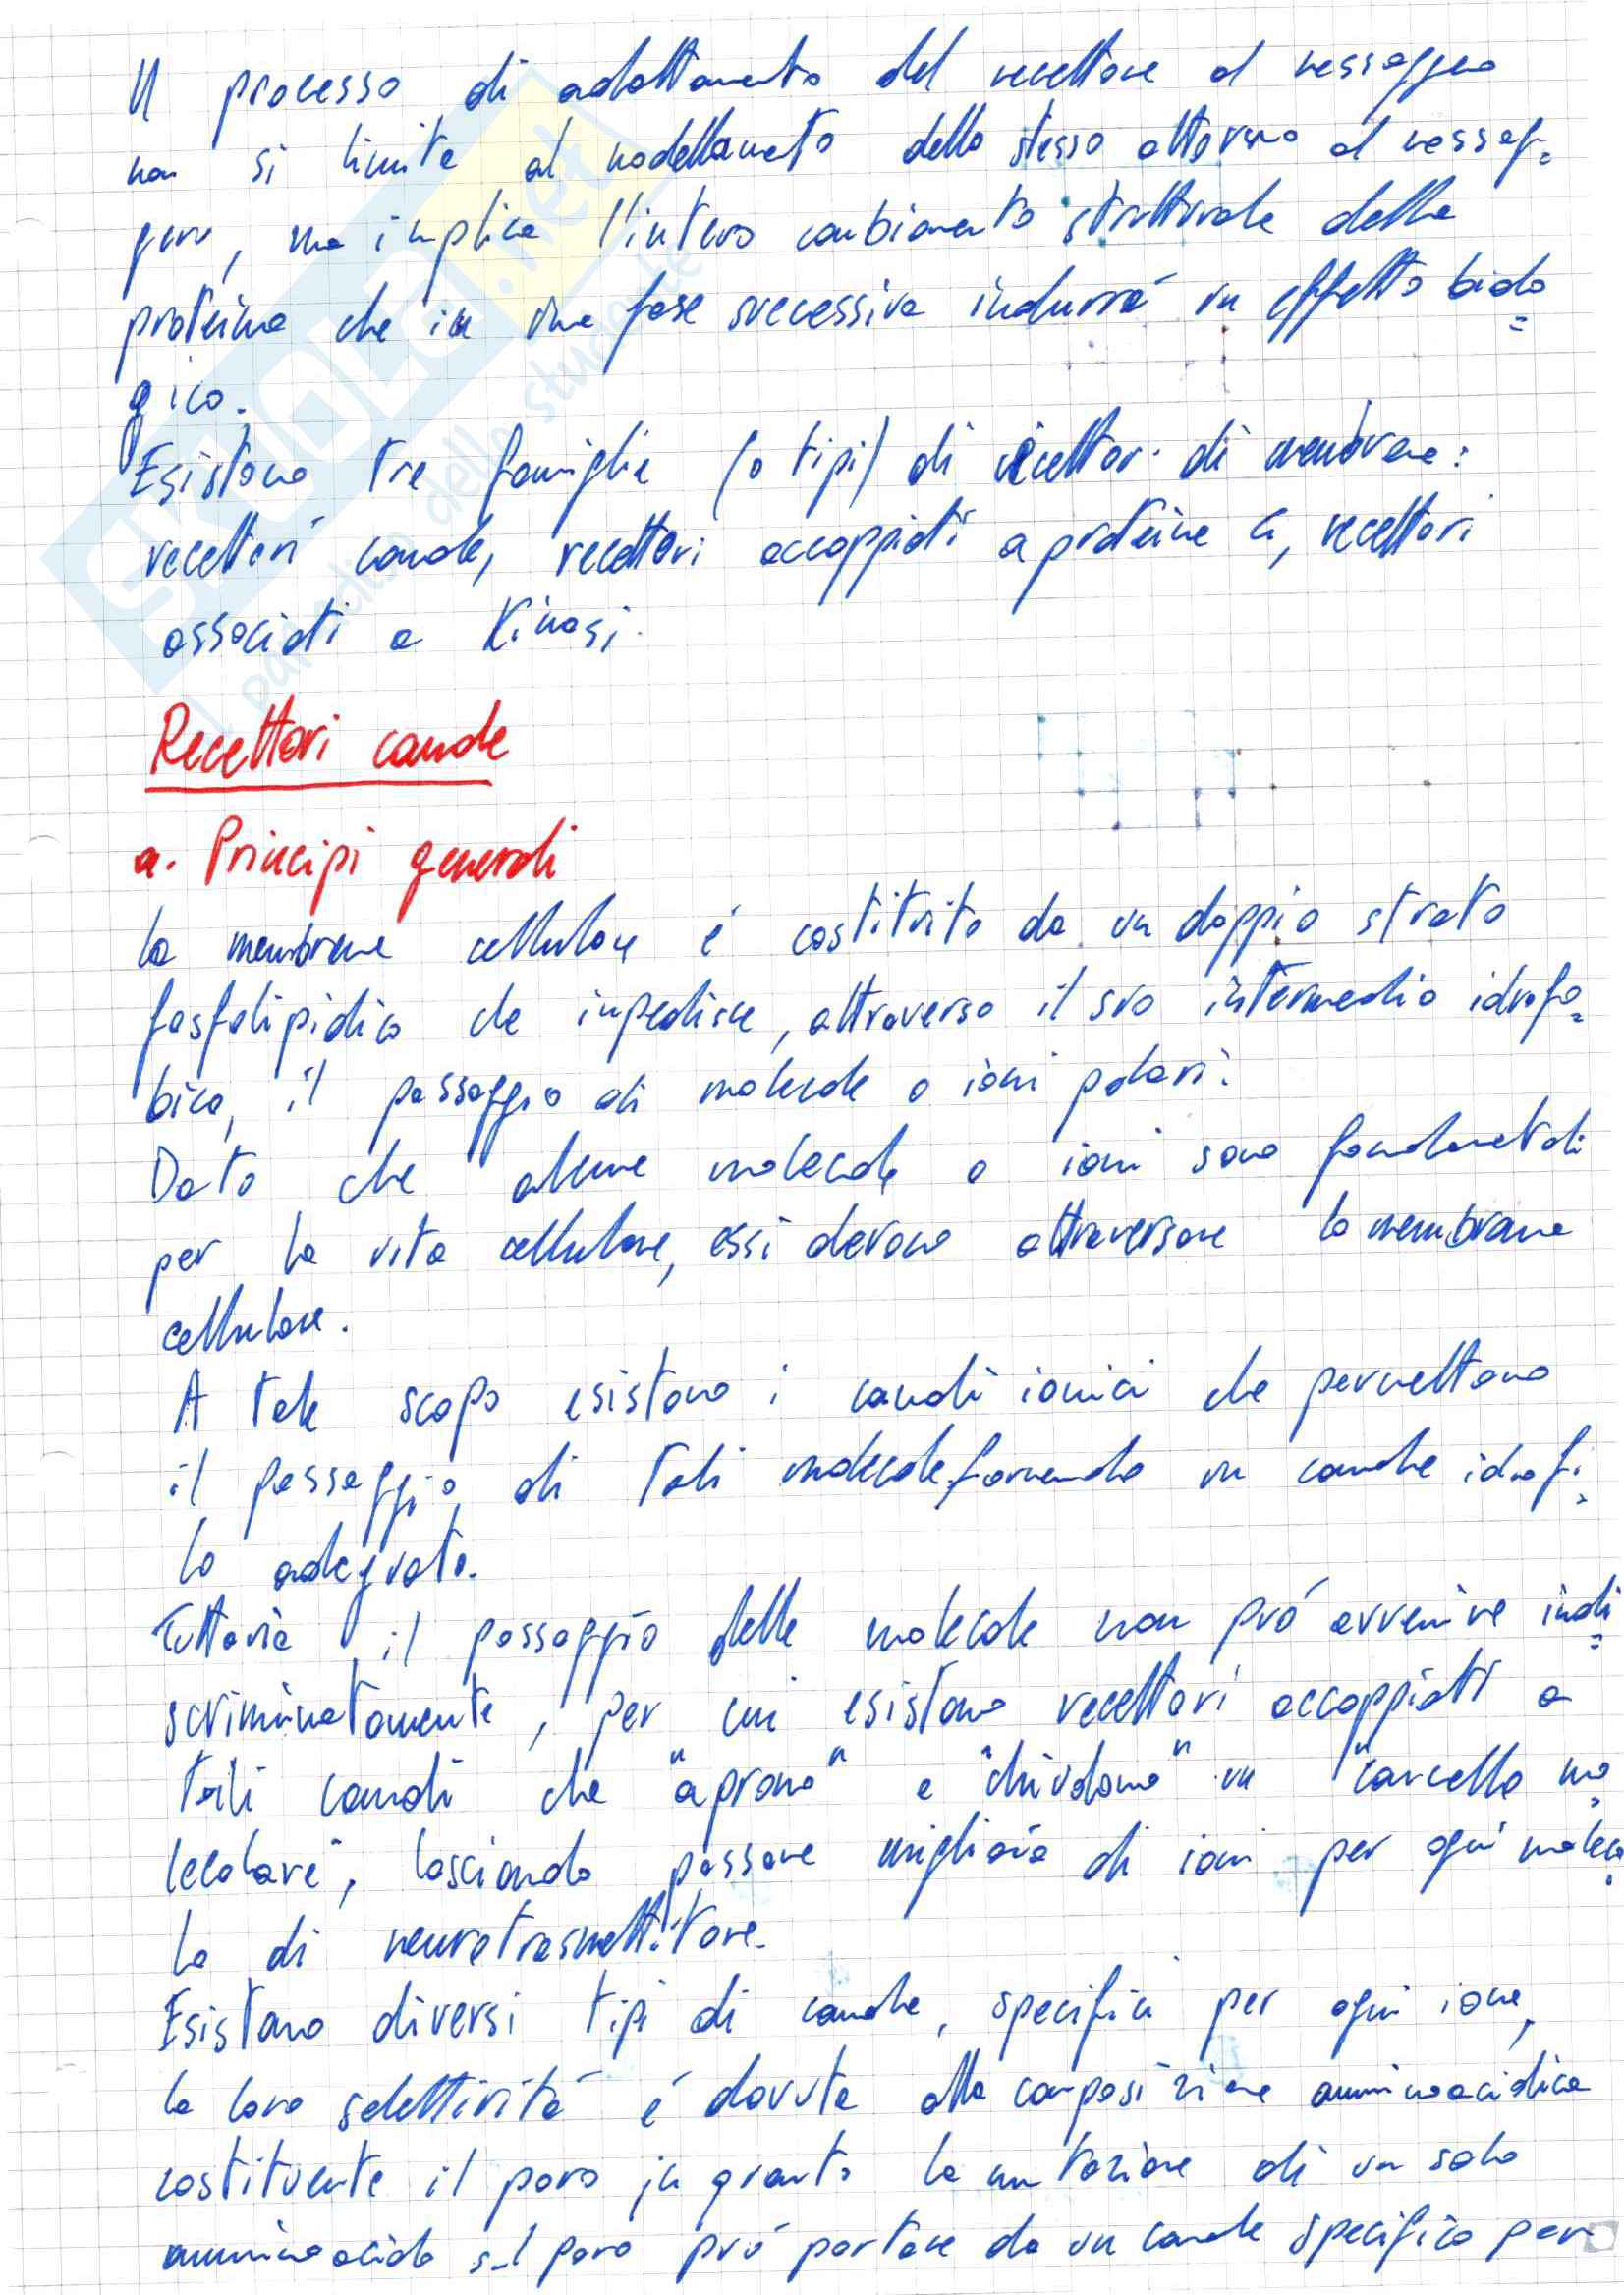 Il processo di adattamento del recettore al messaggero
non si limita al modellamento dello stesso attorno al messag=
gero, ma implica l'intero cambiamento strutturale della
proteina che in una fase successiva indurrá un effetto biolo
=
gico.
Esistono tre famiglie (o tipi) di recettori di membrana:
recettori canale, recettori accoppiati a proteine G, recettori
associati a Kinasi.
Recettori canale
a. Principi generali
La membrana cellulare é costituita da un doppio strato
fosfolipidico che impedisce, attraverso il suo intermedio idrofo=
bico, il passaggio di molecole o ioni polari.
Dato che alcune molecole o ioni sono fondamentali
per la vita cellulare, essi devono attraversare la membrana
cellulare.
A tale scopo esistono i canali ionici che permettono
il passaggio di tali molecole fornendo un canale idrofi=
lo adeguato.
Tuttavia il passaggio delle molecole non puó avvenire indi=
scriminatamente, per cui esistono recettori accoppiati a
tali canali che "aprono" e "chiudono" un "cancello mo=
lecolare", lasciando passare migliaia di ioni per ogni molecu=
la di neurotrasmettitore.
Esistono diversi tipi di canale, specifici per ogni ione,
la loro selettivitá é dovuta alla composizione amminoacidica
costituente il poro in quanto la mutazione di un solo
amminoacido sul poro puó portare da un canale specifico per
SKUOLA.net
il paradiso dello studente